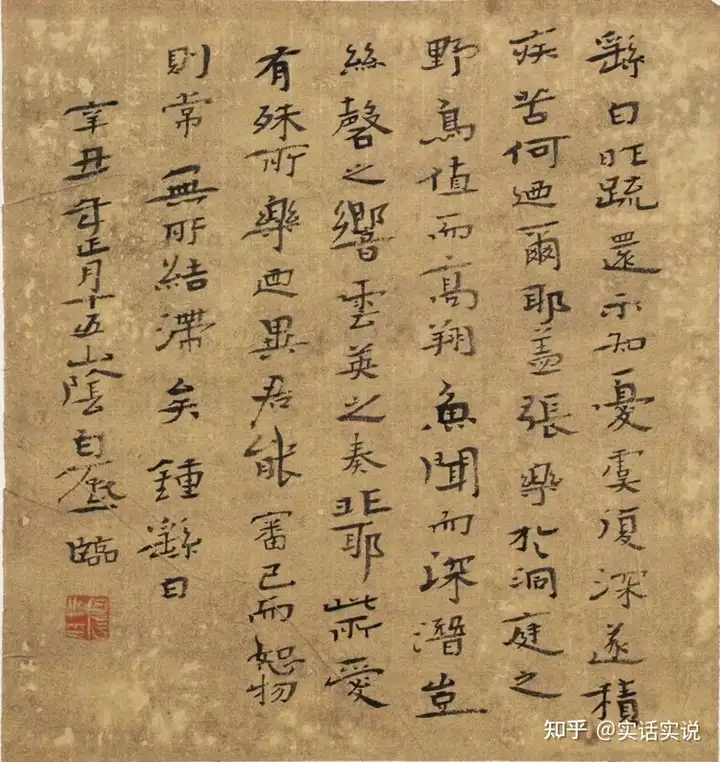 繇白昨疏還示知憂虞復深遂積
疾苦何迺爾耶盖張樂於洞庭之
野鳥值而高翔魚聞而深潛豈
絲磬之響雲英之奏非耶此所愛
有殊所樂迺異君能審己而恕物
則常無所結滯矣 鍾繇白
辛丑年正月十五山陰白臨
知乎 @实话实说